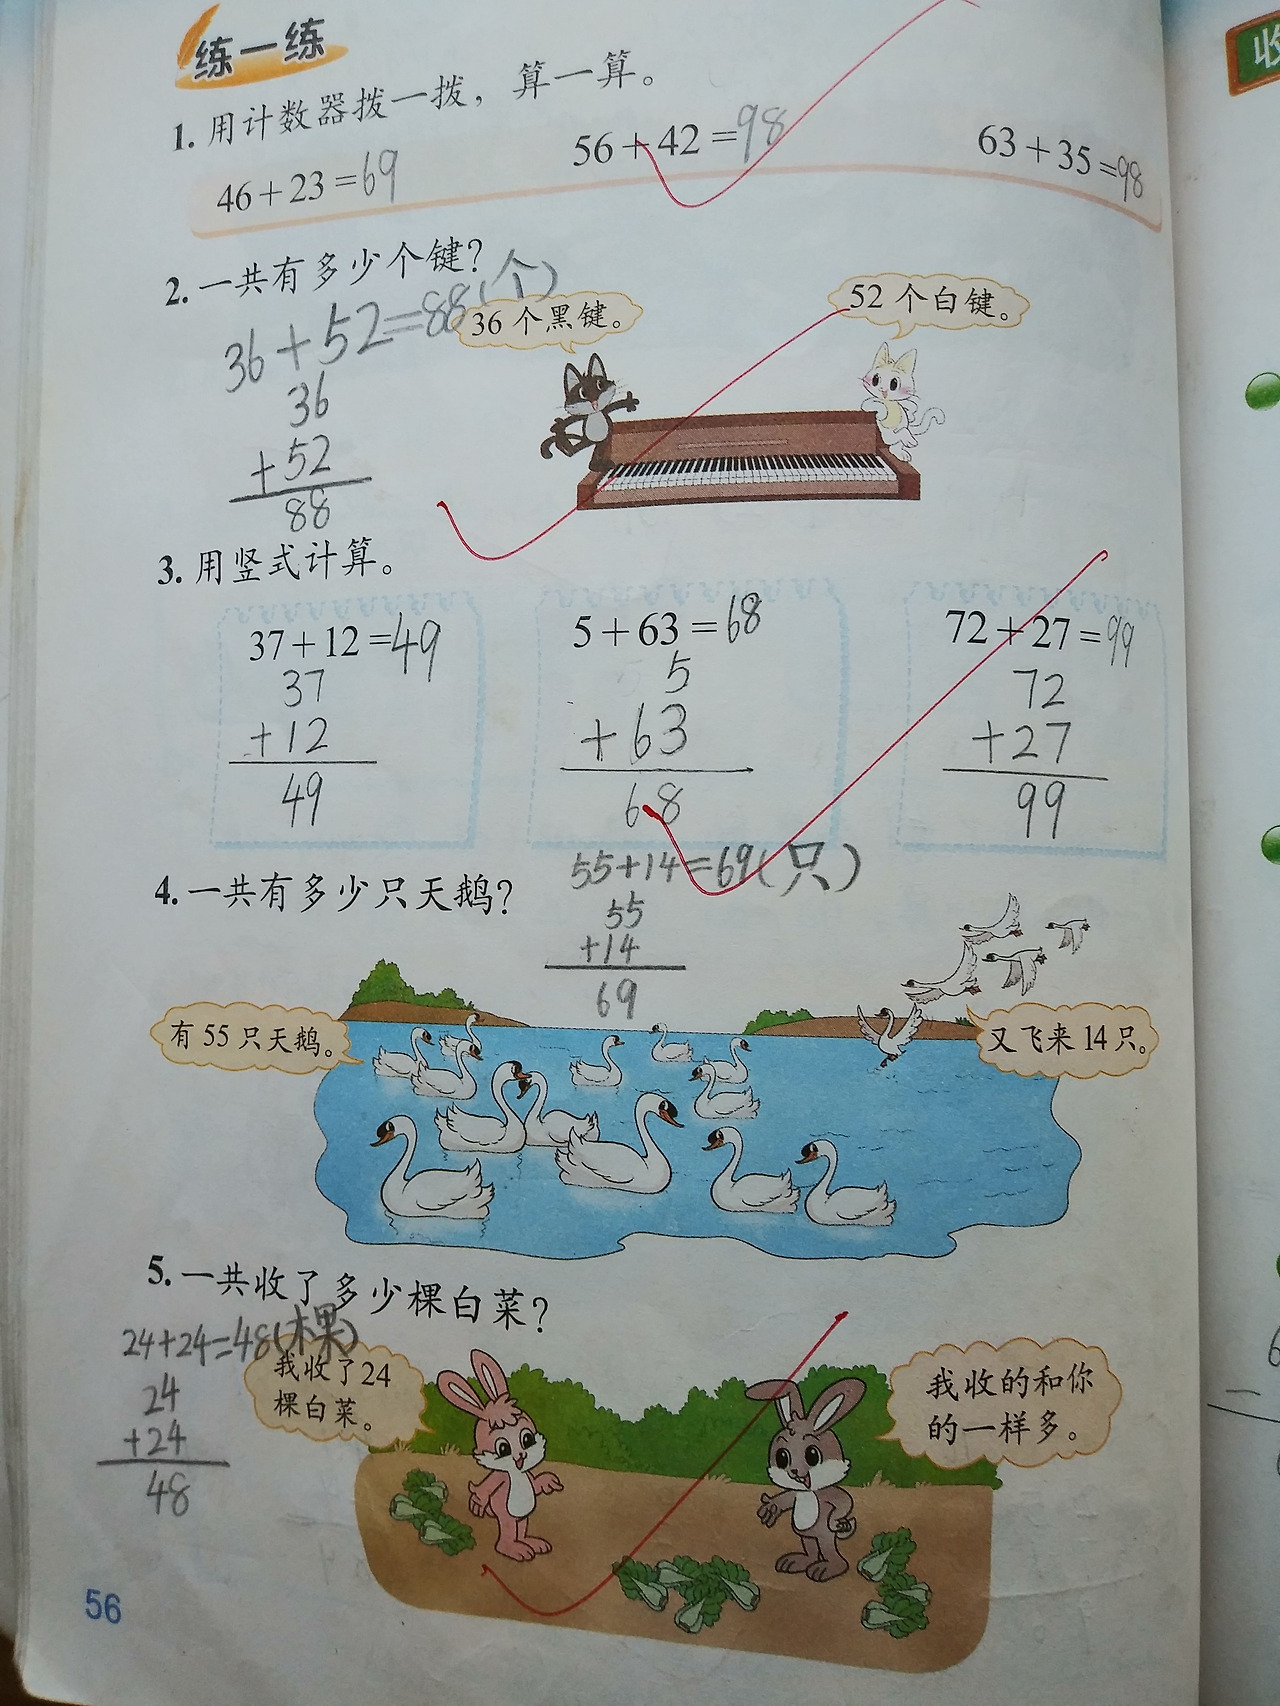 练一练
1. 用计数器拨一拨，算一算。
46+23=69
56+42=98
63+35=98
2. 一共有多少个键？
36+52=88(个)
36个黑键。
52个白键。
36
+52
88
3. 用竖式计算。
37+12=49
37
+12
49
5+63=68
5
+63
68
72+27=99
72
+27
99
4. 一共有多少只天鹅？
55+14=69(只)
55
+14
69
有55只天鹅。
又飞来14只。
5. 一共收了多少棵白菜？
24+24=48(棵)
24
+24
48
我收了24
棵白菜。
我收的和你
的一样多。
56
收